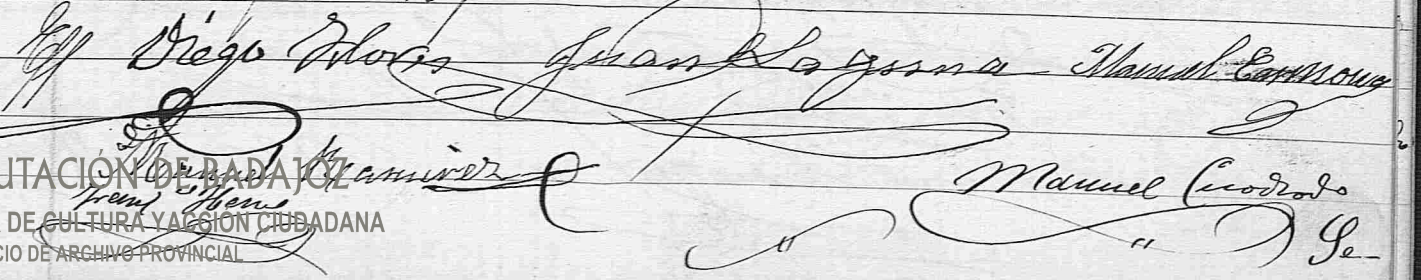 Diego Flores Juan Laguna Manuel Carmona
Manuel Ramirez Manuel Cuadrado
UTACIÓN DE BADAJOZ
DE CULTURA Y ACCIÓN CIUDADANA
CIO DE ARCHIVO PROVINCIAL
Se-